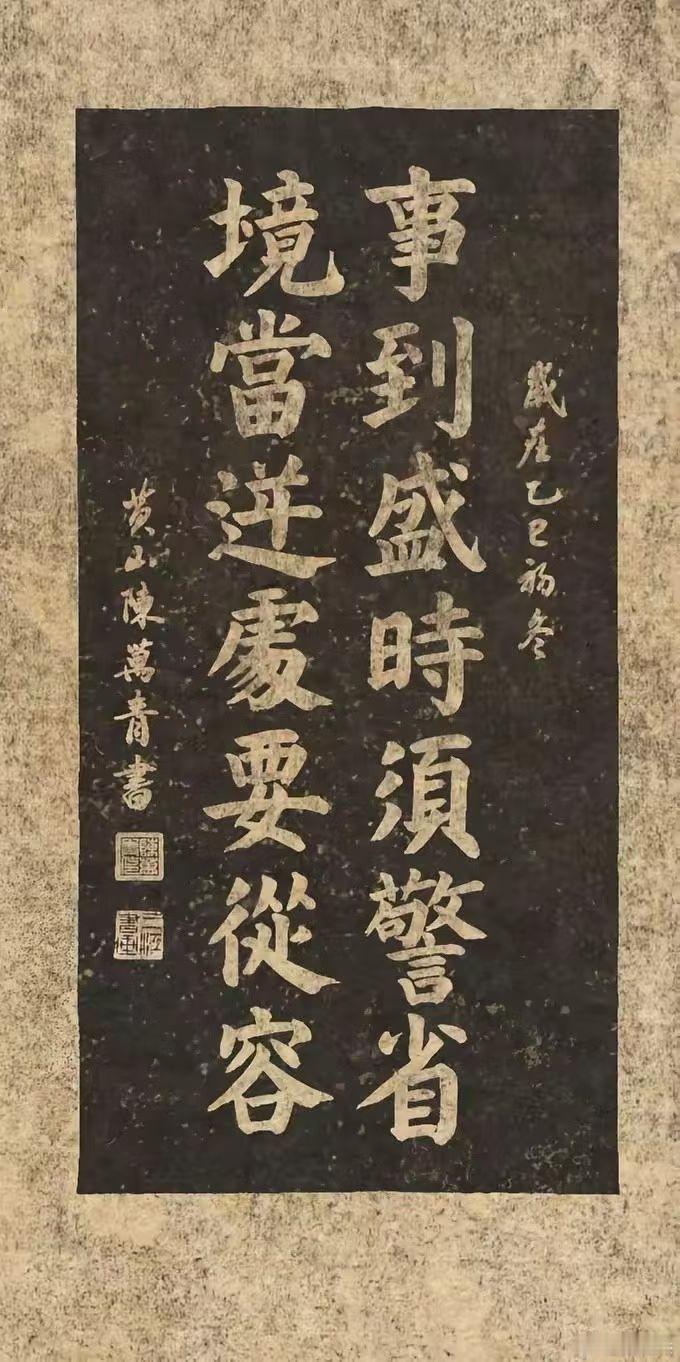 歲在乙巳初冬
事到盛時須警省
境當逆處要從容
黄山陳萬青書